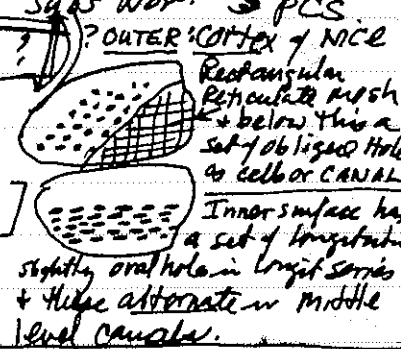 PCS
? OUTER: CORTEX of NICE
Rectangular
Reticulate mesh
+ below this a
set of oblique Hole
as cell or CANAL
Inner surface has
a set of longitudin
slightly oval hole in longit series
+ these alternate in middle
level canals.